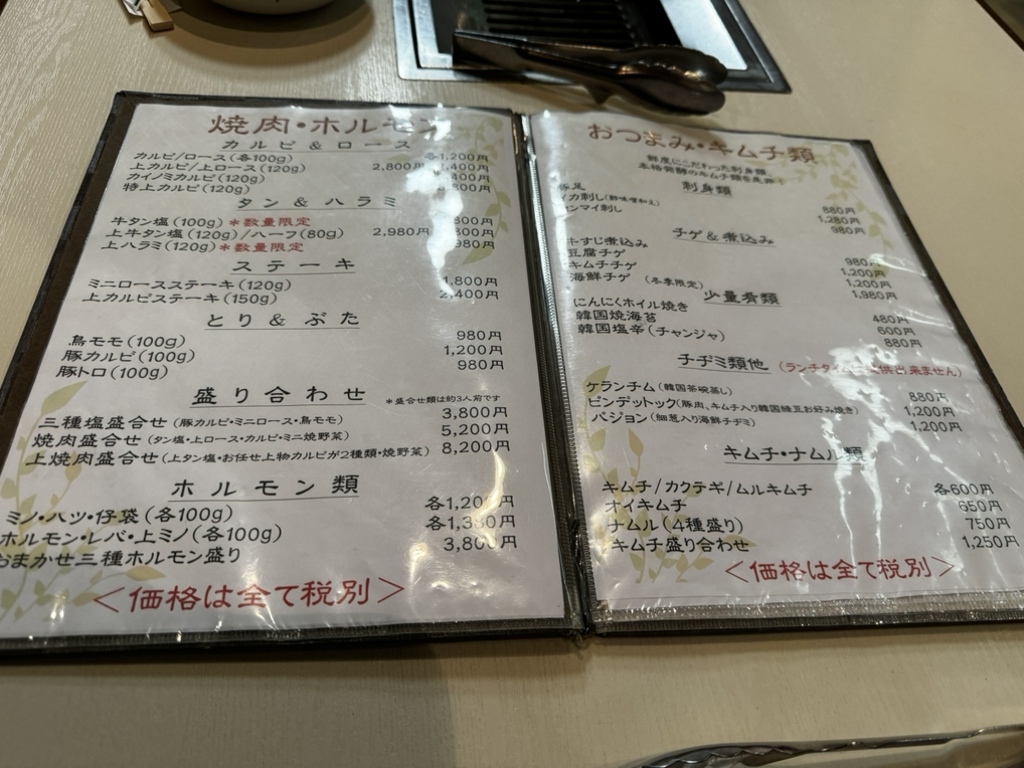 焼肉・ホルモン
カルビ＆ロース
カルビ/ロース(各100g) 各1,200円
上カルビ/上ロース(120g) 2,800円 400円
カイノミカルビ(120g) 400円
特上カルビ(120g) 800円
タン＆ハラミ
牛タン塩(100g)＊数量限定 800円
上牛タン塩(120g)/ハーフ(80g) 2,980円 800円
上ハラミ(120g)＊数量限定 980円
ステーキ
ミニロースステーキ(120g) 1,800円
上カルビステーキ(150g) 2,400円
とり＆ぶた
鳥モモ(100g) 980円
豚カルビ(100g) 1,200円
豚トロ(100g) 980円
盛り合わせ ＊盛合せ類は約3人前です
三種塩盛合せ(豚カルビ・ミニロース・鳥モモ) 3,800円
焼肉盛合せ(タン塩・上ロース・カルビ・ミニ焼野菜) 5,200円
上焼肉盛合せ(上タン塩・お任せ上物カルビが2種類・焼野菜) 8,200円
ホルモン類
ミノ・ハツ・仔袋(各100g) 各1,200円
ホルモン・レバ・上ミノ(各100g) 各1,380円
おまかせ三種ホルモン盛り 3,800円
＜価格は全て税別＞
おつまみ・キムチ類
鮮度にこだわった刺身類、
本格発酵のキムチ類を是非！
刺身類
豚足 880円
イカ刺し(酢味噌和え) 1,280円
センマイ刺し 980円
チゲ＆煮込み
牛すじ煮込み 980円
豆腐チゲ 1,200円
キムチチゲ 1,200円
海鮮チゲ (冬季限定) 1,980円
少量肴類
にんにくホイル焼き 480円
韓国焼海苔 600円
韓国塩辛(チャンジャ) 880円
チヂミ類他 (ランチタイム 供出来ません)
ケランチム(韓国茶碗蒸し) 880円
ピンデットック(豚肉、キムチ入り韓国緑豆お好み焼き) 1,200円
パジョン(細葱入り海鮮チヂミ) 1,200円
キムチ・ナムル類
キムチ/カクテギ/ムルキムチ 各600円
オイキムチ 650円
ナムル(4種盛り) 750円
キムチ盛り合わせ 1,250円
＜価格は全て税別＞